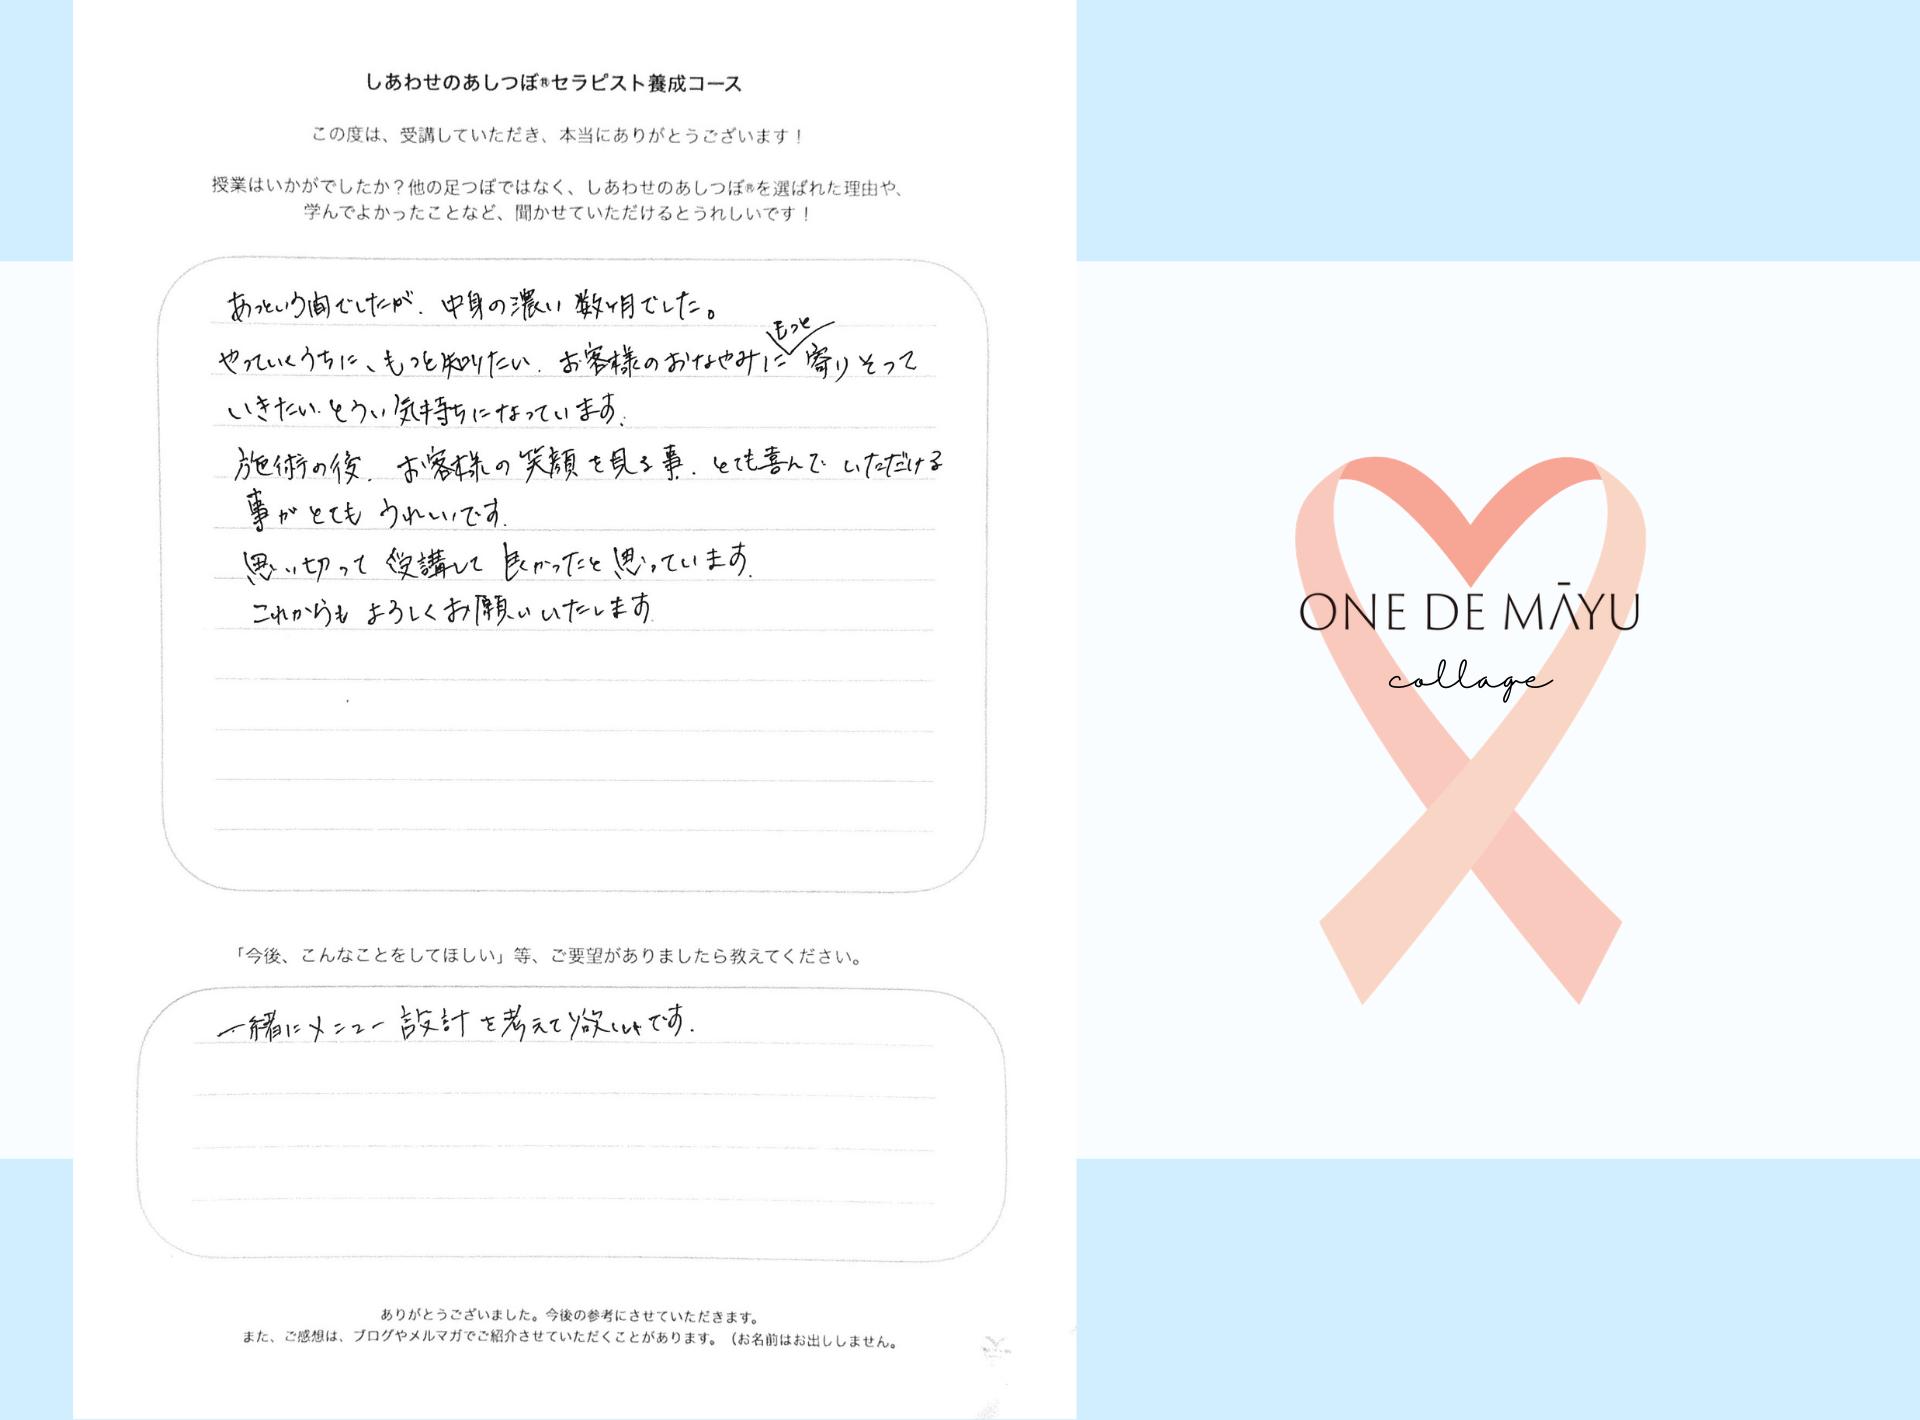 しあわせのあしつぼ®セラピスト養成コース
この度は、受講していただき、本当にありがとうございます！
授業はいかがでしたか？他の足つぼではなく、しあわせのあしつぼ®を選ばれた理由や、
学んでよかったことなど、聞かせていただけるとうれしいです！
あっという間でしたが、中身の濃い数ヶ月でした。
やっていくうちに、もっと知りたい、お客様のおなやみにもっと寄りそって
いきたい、とういう気持ちになっています。
施術の後、お客様の笑顔を見る事、とても喜んでいただける
事がとてもうれしいです。
思い切って受講して良かったと思っています。
これからもよろしくお願いいたします。
「今後、こんなことをしてほしい」等、ご要望がありましたら教えてください。
一緒にメニュー設計を考えて欲しいです。
ありがとうございました。今後の参考にさせていただきます。
また、ご感想は、ブログやメルマガでご紹介させていただくことがあります。（お名前はお出ししません。
ONE DE MĀYU
collage